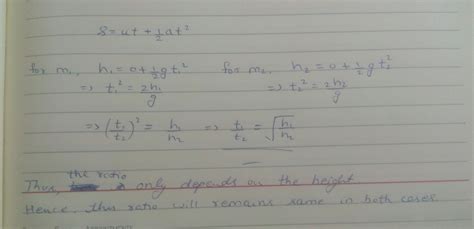 S = ut + ½at²
for m₁, h₁ = 0 + ½gt₁² for m₂, h₂ = 0 + ½gt₂²
⇒ t₁² = 2h₁/g ⇒ t₂² = 2h₂/g
⇒ (t₁/t₂)² = h₁/h₂ ⇒ t₁/t₂ = √(h₁/h₂)
Thus, the ratio only depends on the height.
Hence, this ratio will remains same in both cases.